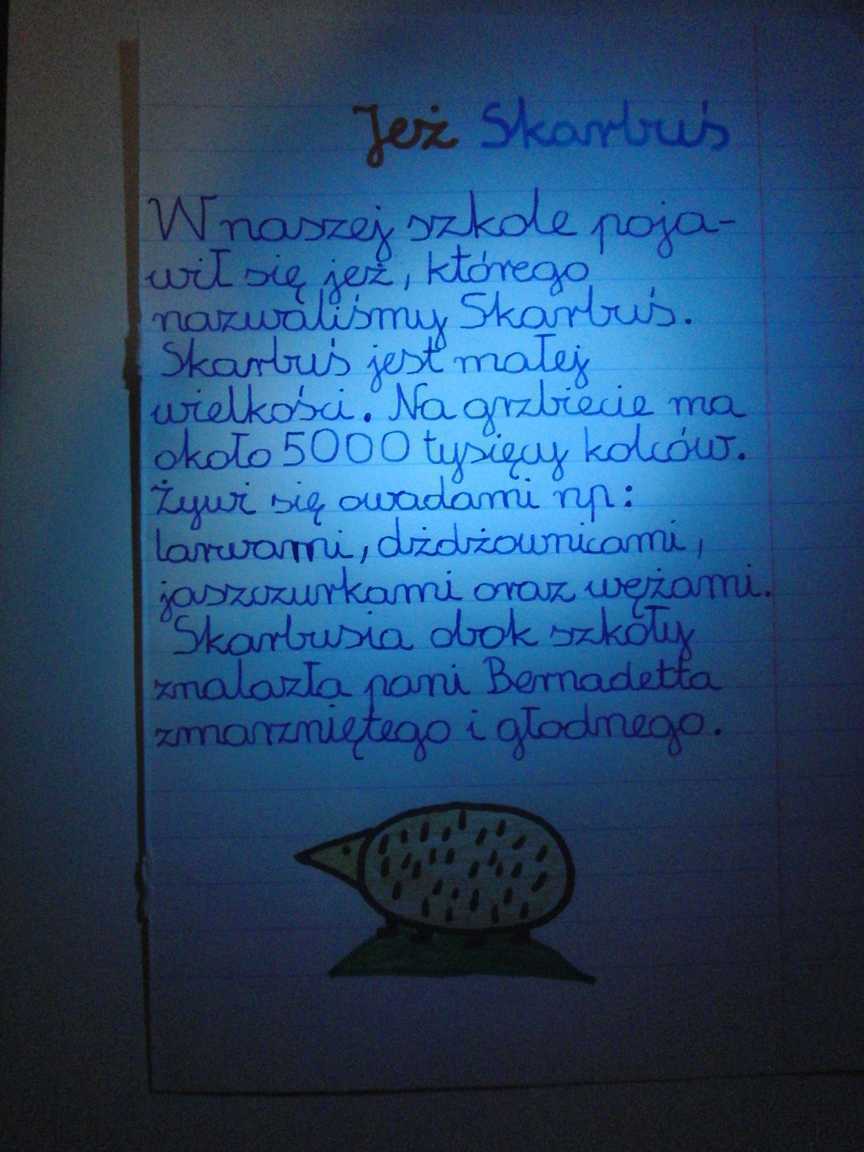 Jeż Skarbuś
W naszej szkole poja-
wił się jeż, którego
nazwaliśmy Skarbuś.
Skarbuś jest małej
wielkości. Na grzbiecie ma
około 5000 tysięcy kolców.
Żywi się owadami np:
larwami, dżdżownicami,
jaszczurkami oraz wężami.
Skarbusia obok szkoły
znalazła pani Bernadetta
zmarzniętego i głodnego.